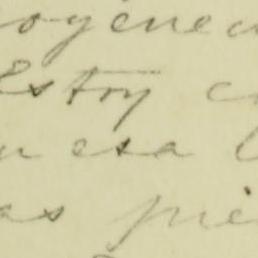 ogene
Estoy c
n esa l
as pie